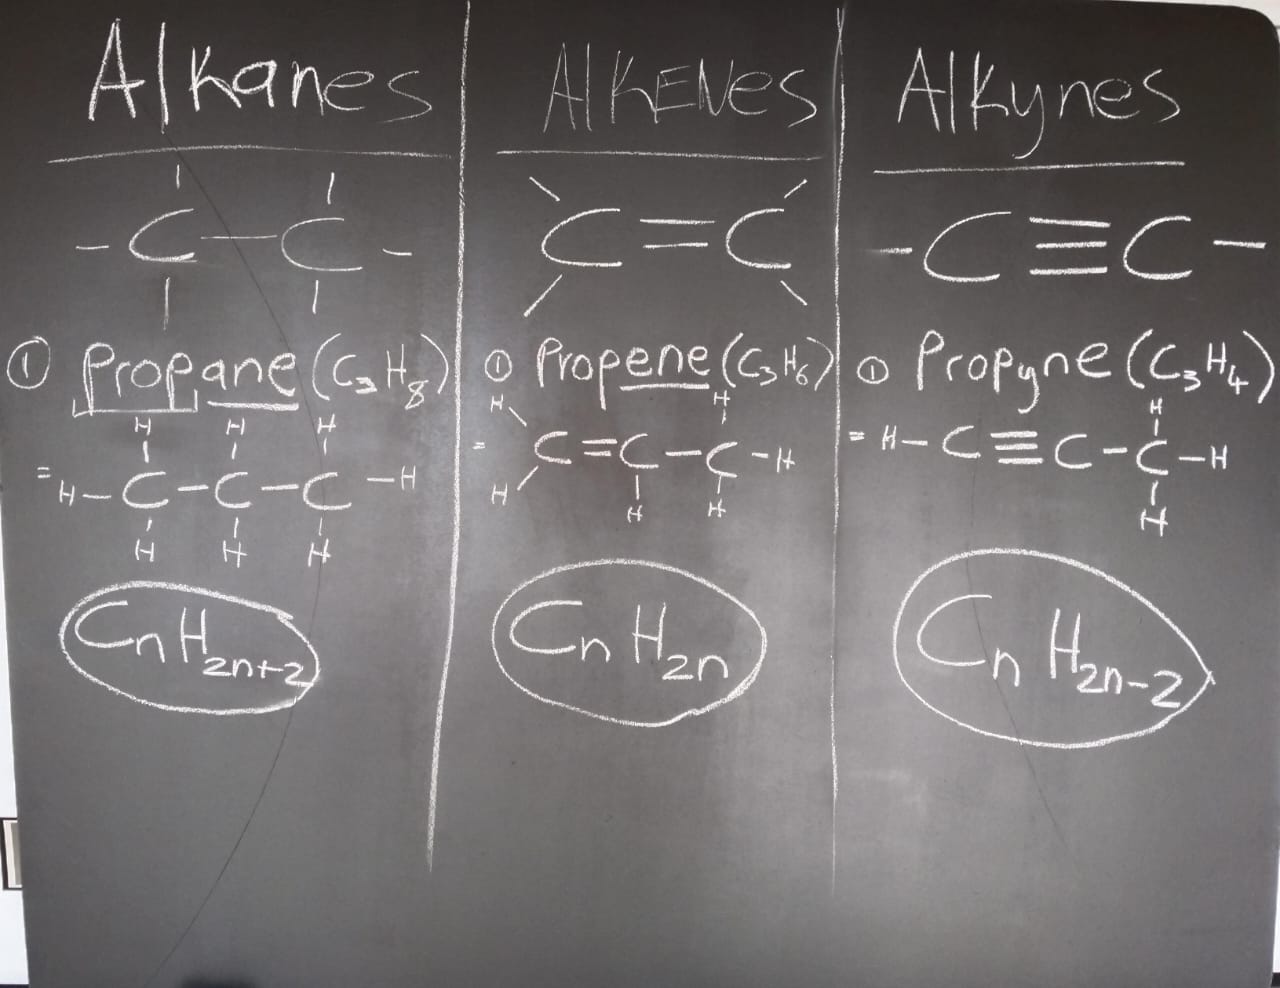 Alkanes
- C - C -
① Propane (C₃H₈)
H H H
= H - C - C - C - H
H H H
CnH2n+2
AlKENes
C = C
① Propene (C₃H₆)
H H
= C = C - C - H
H H H
CnH2n
Alkynes
- C ≡ C -
① Propyne (C₃H₄)
H
= H - C ≡ C - C - H
H
CnH2n-2